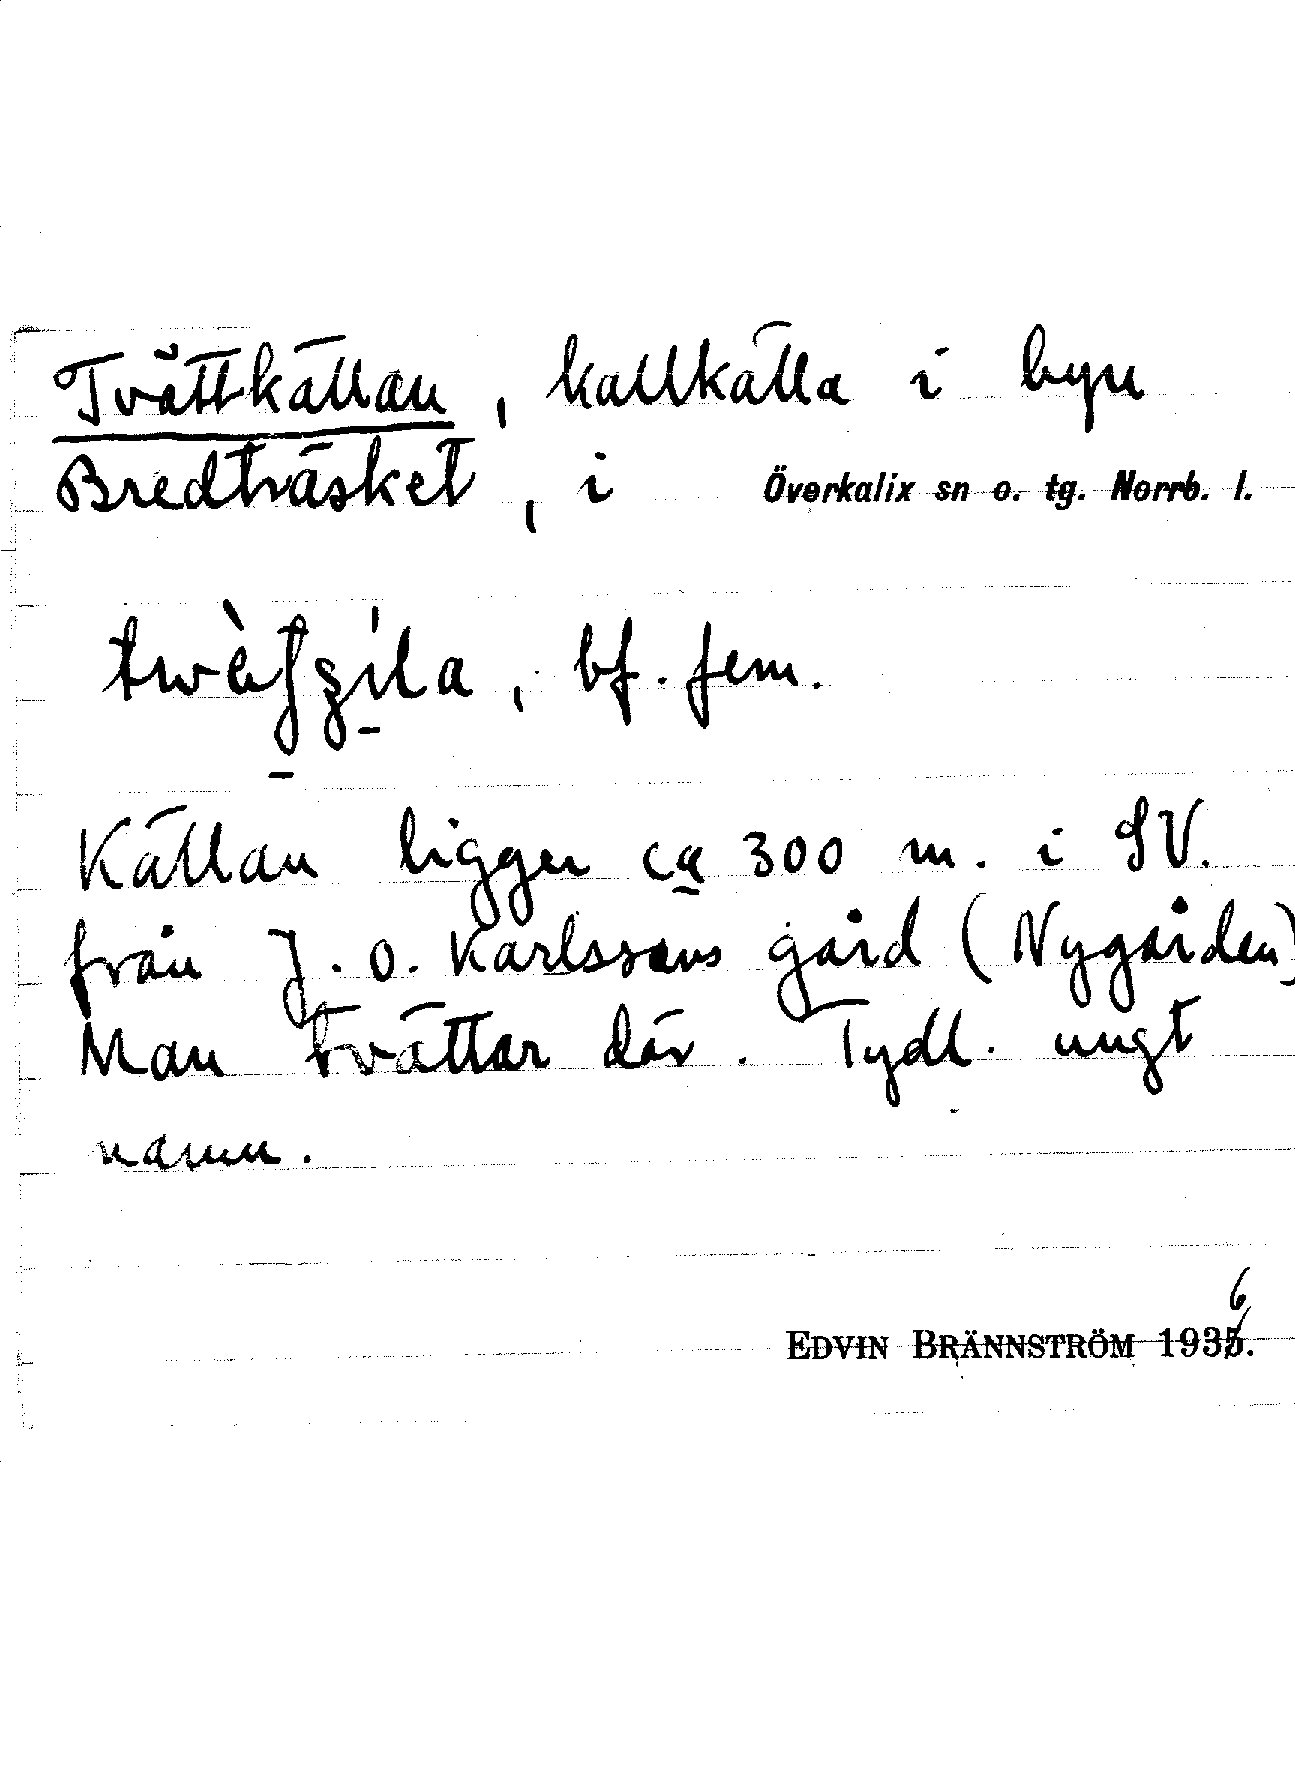 Tvättkällan, kallkälla i byn
Bredträsket, i Överkalix sn o. tg. Norrb. l.
bf. fem.
Källan ligger ca 300 m. i SV.
från J. O. Karlssons gård (Nygården)
Man tvättar där. Tydl. ungt
namn.
6
EDVIN BRÄNNSTRÖM 1935.